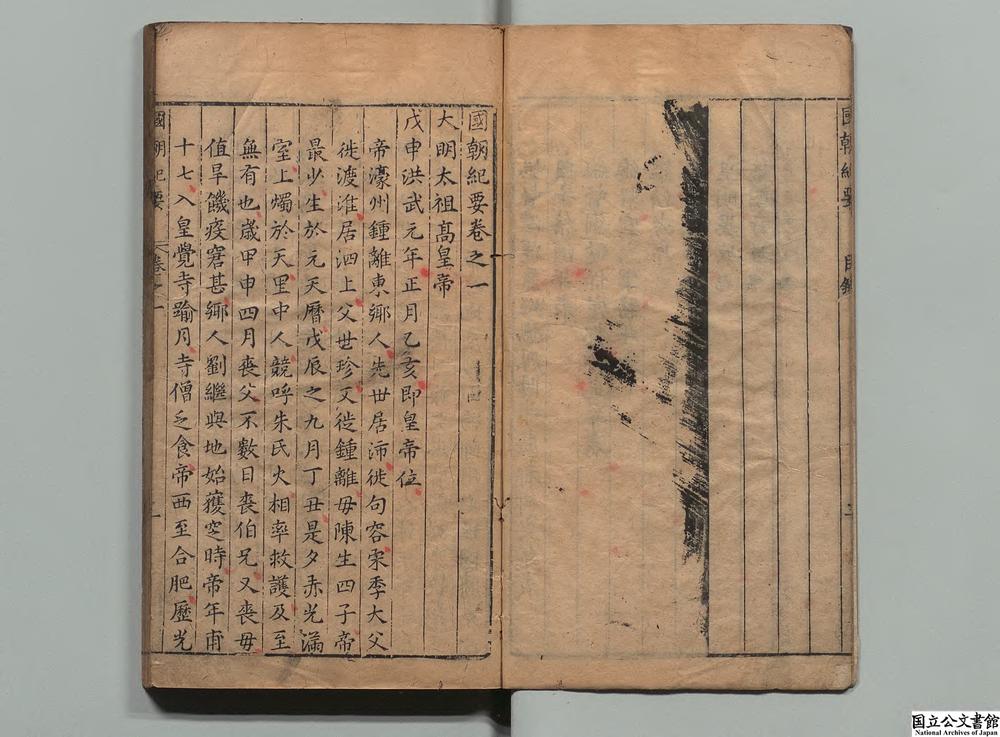 國朝紀要 目錄
二
國朝紀要卷之一
大明太祖高皇帝
戊申洪武元年正月乙亥即皇帝位
帝濠州鍾離東鄉人先世居沛徙句容宋季大父
徙渡淮居泗上父世珍又徙鍾離母陳生四子帝
最少生於元天曆戊辰之九月丁丑是夕赤光滿
室上燭於天里中人競呼朱氏火相率救護及至
無有也歲甲申四月喪父不數日喪伯兄又喪母
值旱饑疫窘甚鄉人劉繼與地始葬空時帝年甫
十七入皇覺寺踰月寺僧乏食帝西至合肥歷光
國朝紀要 卷之一
一
国立公文書館
National Archives of Japan